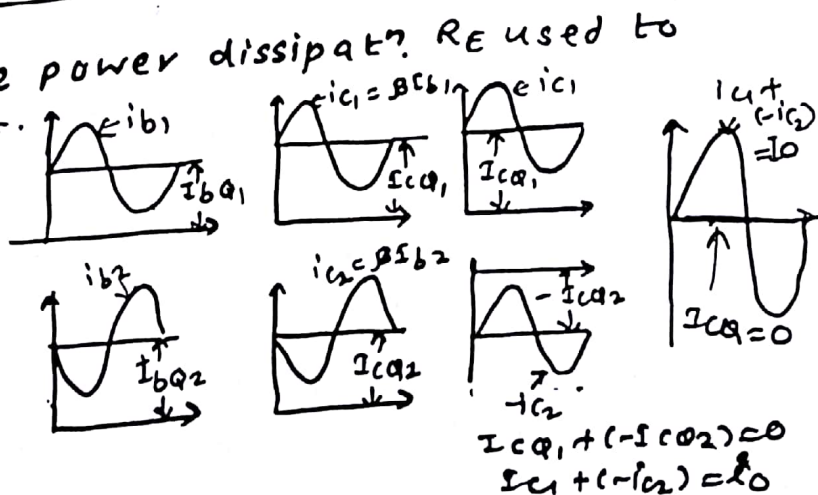 e power dissipatn. RE used to
ib1
IbQ1
ic1 = βib1
ICQ1
ic1
ICQ1
ic1 +
(-ic2)
= I0
ICQ = 0
ib2
IbQ2
ic2 = βIb2
ICQ2
-ICQ2
-ic2
ICQ1 + (-ICQ2) = 0
Ic1 + (-ic2) = i0